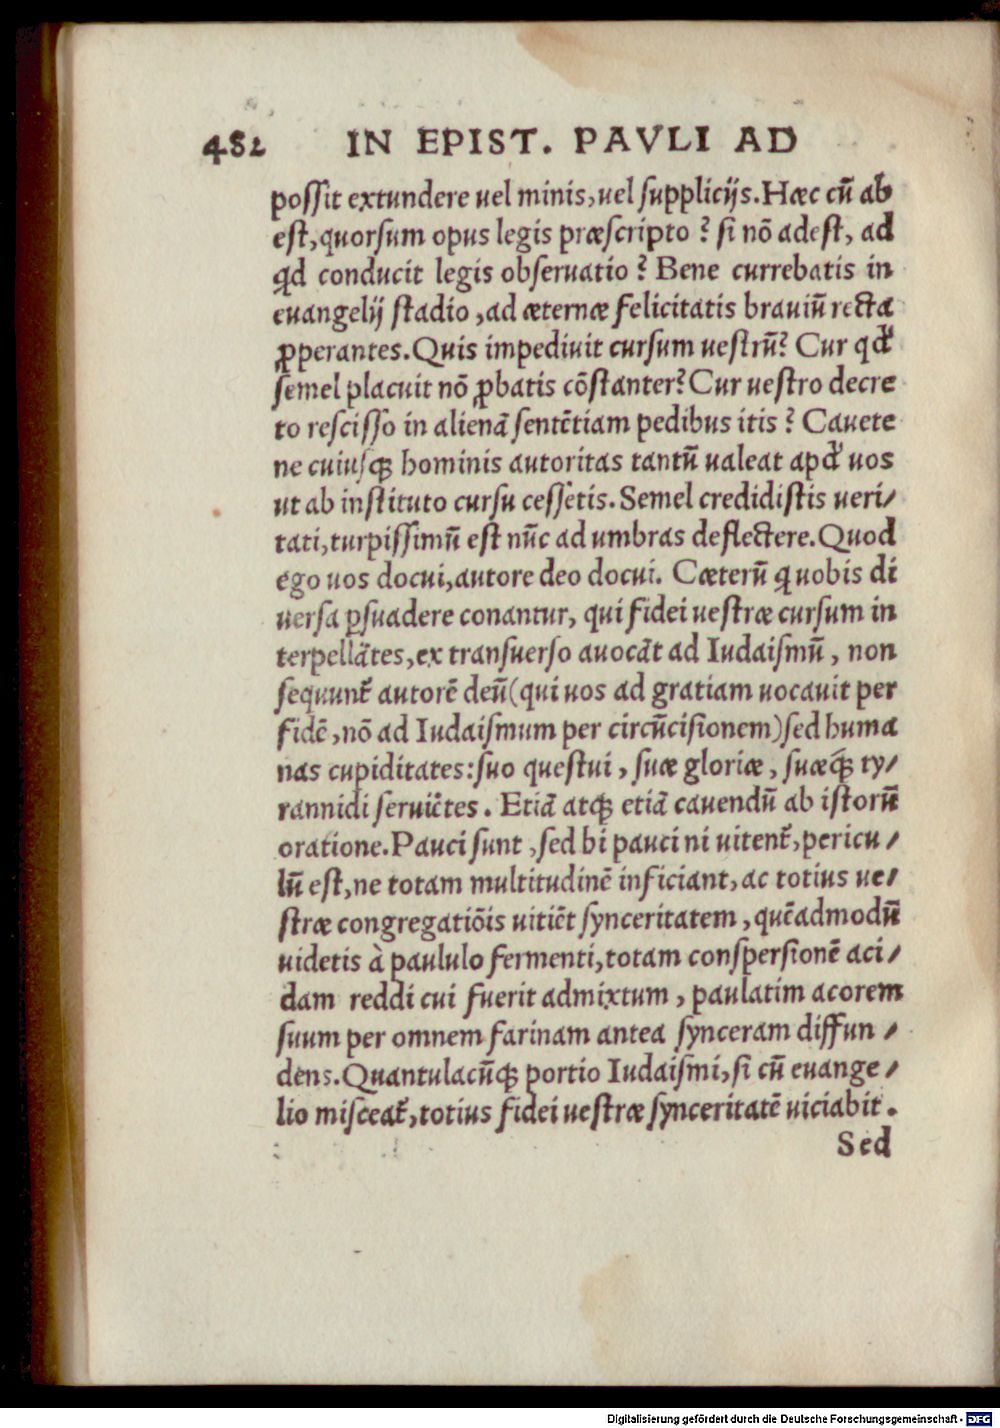 482 IN EPIST. PAVLI AD
possit extundere uel minis, uel supplicijs. Hæc cũ ab
est, quorsum opus legis præscripto ? si nõ adest, ad
qd conducit legis obseruatio ? Bene currebatis in
euangelij stadio, ad æternæ felicitatis brauiũ recta
ꝓperantes. Quis impediuit cursum uestrũ? Cur qđ
semel placuit nõ ꝓbatis cõstanter? Cur uestro decre
to rescisso in alienã sentẽtiam pedibus itis ? Cauete
ne cuiusꝗ hominis autoritas tantũ ualeat apđ uos
ut ab instituto cursu cessetis. Semel credidistis ueri/
tati, turpissimũ est nũc ad umbras deflectere. Quod
ego uos docui, autore deo docui. Cæterũ ꝗ uobis di
uersa ꝑsuadere conantur, qui fidei uestræ cursum in
terpellãtes, ex transuerso auocãt ad Iudaismũ, non
sequunt᷑ autorẽ deũ (qui uos ad gratiam uocauit per
fidẽ, nõ ad Iudaismum per circũcisionem) sed huma
nas cupiditates: suo questui, suæ gloriæ, suæꝗ́ ty/
rannidi seruiẽtes. Etiã atꝗ etiã cauendũ ab istorũ
oratione. Pauci sunt, sed hi pauci ni uitent᷑, pericu/
lũ est, ne totam multitudinẽ inficiant, ac totius ue/
stræ congregatiõis uitiẽt synceritatem, quẽadmodũ
uidetis à paululo fermenti, totam conspersionẽ aci/
dam reddi cui fuerit admixtum, paulatim acorem
suum per omnem farinam antea synceram diffun/
dens. Quantulacũꝗ portio Iudaismi, si cũ euange/
lio misceat᷑, totius fidei uestræ synceritatẽ uiciabit.
Sed
Digitalisierung gefördert durch die Deutsche Forschungsgemeinschaft - DFG